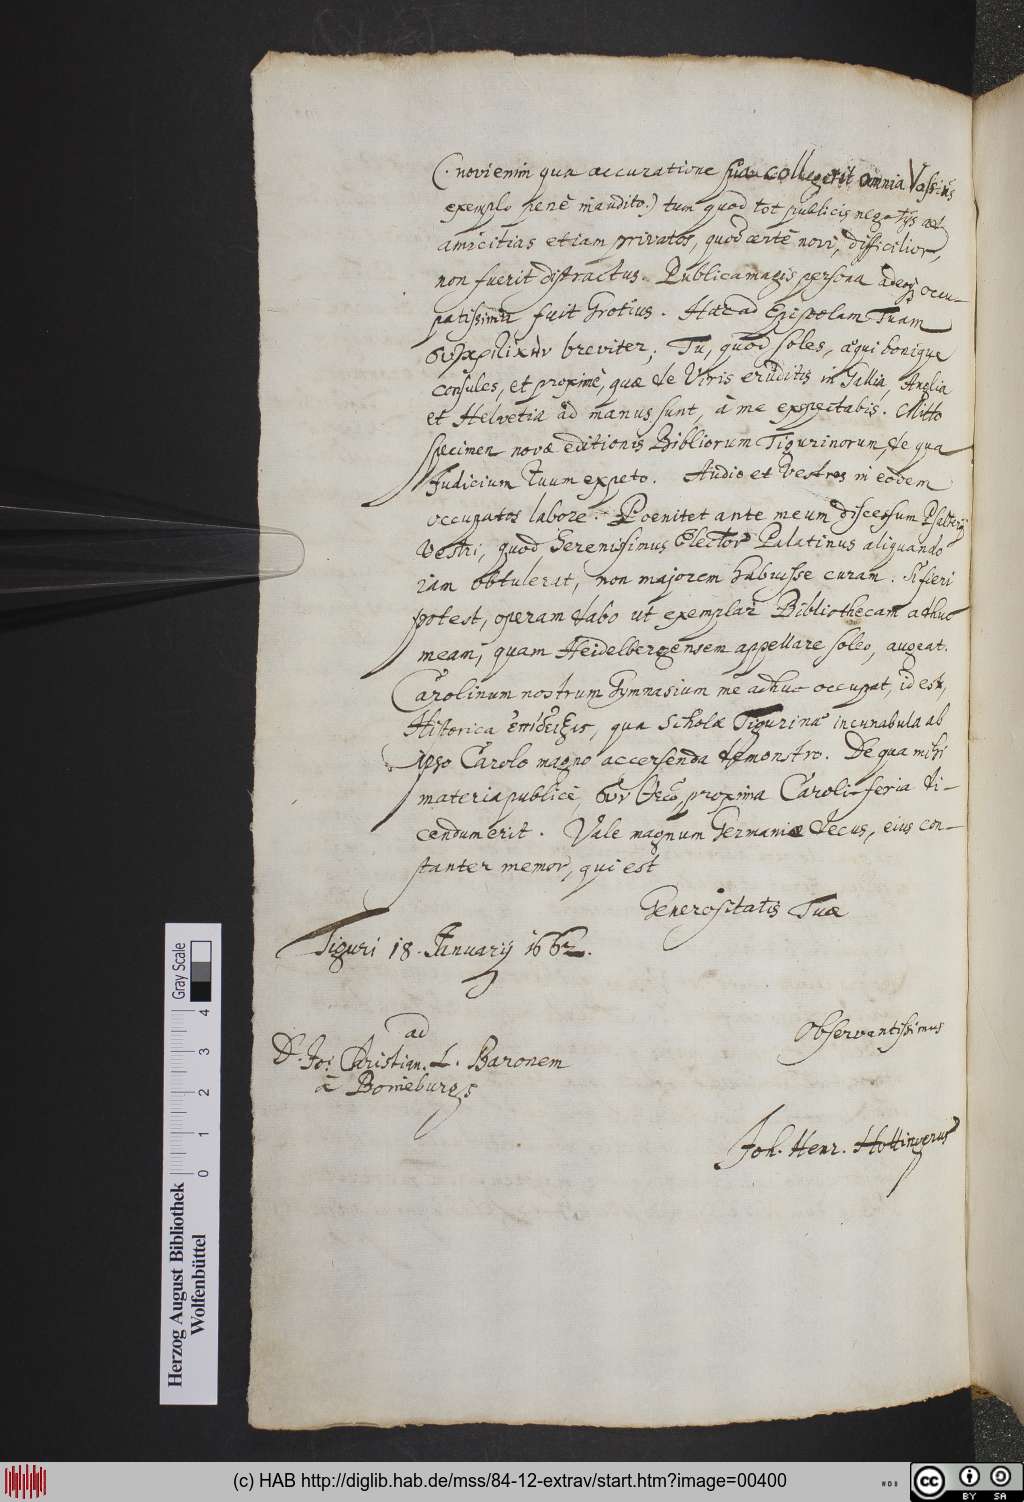 (. novi enim qua accuratione sua collegerit omnia Vossius
exemplo penè inaudito.) tum quod tot publicis negotijs
amicitias etiam privatos, quod certè novi, difficilior,
non fuerit distractus. Publica magis persona adeoq; occu-
patissima fuit Grotius. Haec ad Epistolam Tuam
breviter. Tu, quod soles, aequi bonique
consules, et proximè, quae de Viris eruditis in Gallia, Anglia
et Helvetia ad manus sunt, à me exspectabis. Mitto
specimen novae editionis Bibliorum Tigurinorum, de qua
Judicium tuum expeto. Audio et Vestros in eodem
occupatos labore. Poenitet ante meum discessum Psalterij
Vestri, quod Serenissimus Elector Palatinus aliquando
iam obtulerat, non majorem habuisse curam. Si fieri
potest, operam dabo ut exemplar Bibliothecam adhuc
meam, quam Heidelbergensem appellare soleo, augeat.
Carolinum nostrum Gymnasium me adhuc occupat, id est,
Historica ἐπίδειξις, qua Scholae Tigurinae incunabula ab
ipso Carolo magno accersenda demonstro. De qua mihi
materia publicè, σὺν Θεῷ, proxima Caroli feria di-
cendum erit. Vale magnum Germaniae decus, eius con-
stanter memor, qui est
Generositatis Tuae
Tiguri 18. Januarij 1662.
Observantissimus
ad
D. Jo: Christian. L. Baronem
à Boineburg
Joh. Henr. Hottingerus
Gray Scale
0 1 2 3 4
Herzog August Bibliothek
Wolfenbüttel
(c) HAB http://diglib.hab.de/mss/84-12-extrav/start.htm?image=00400
cc BY SA